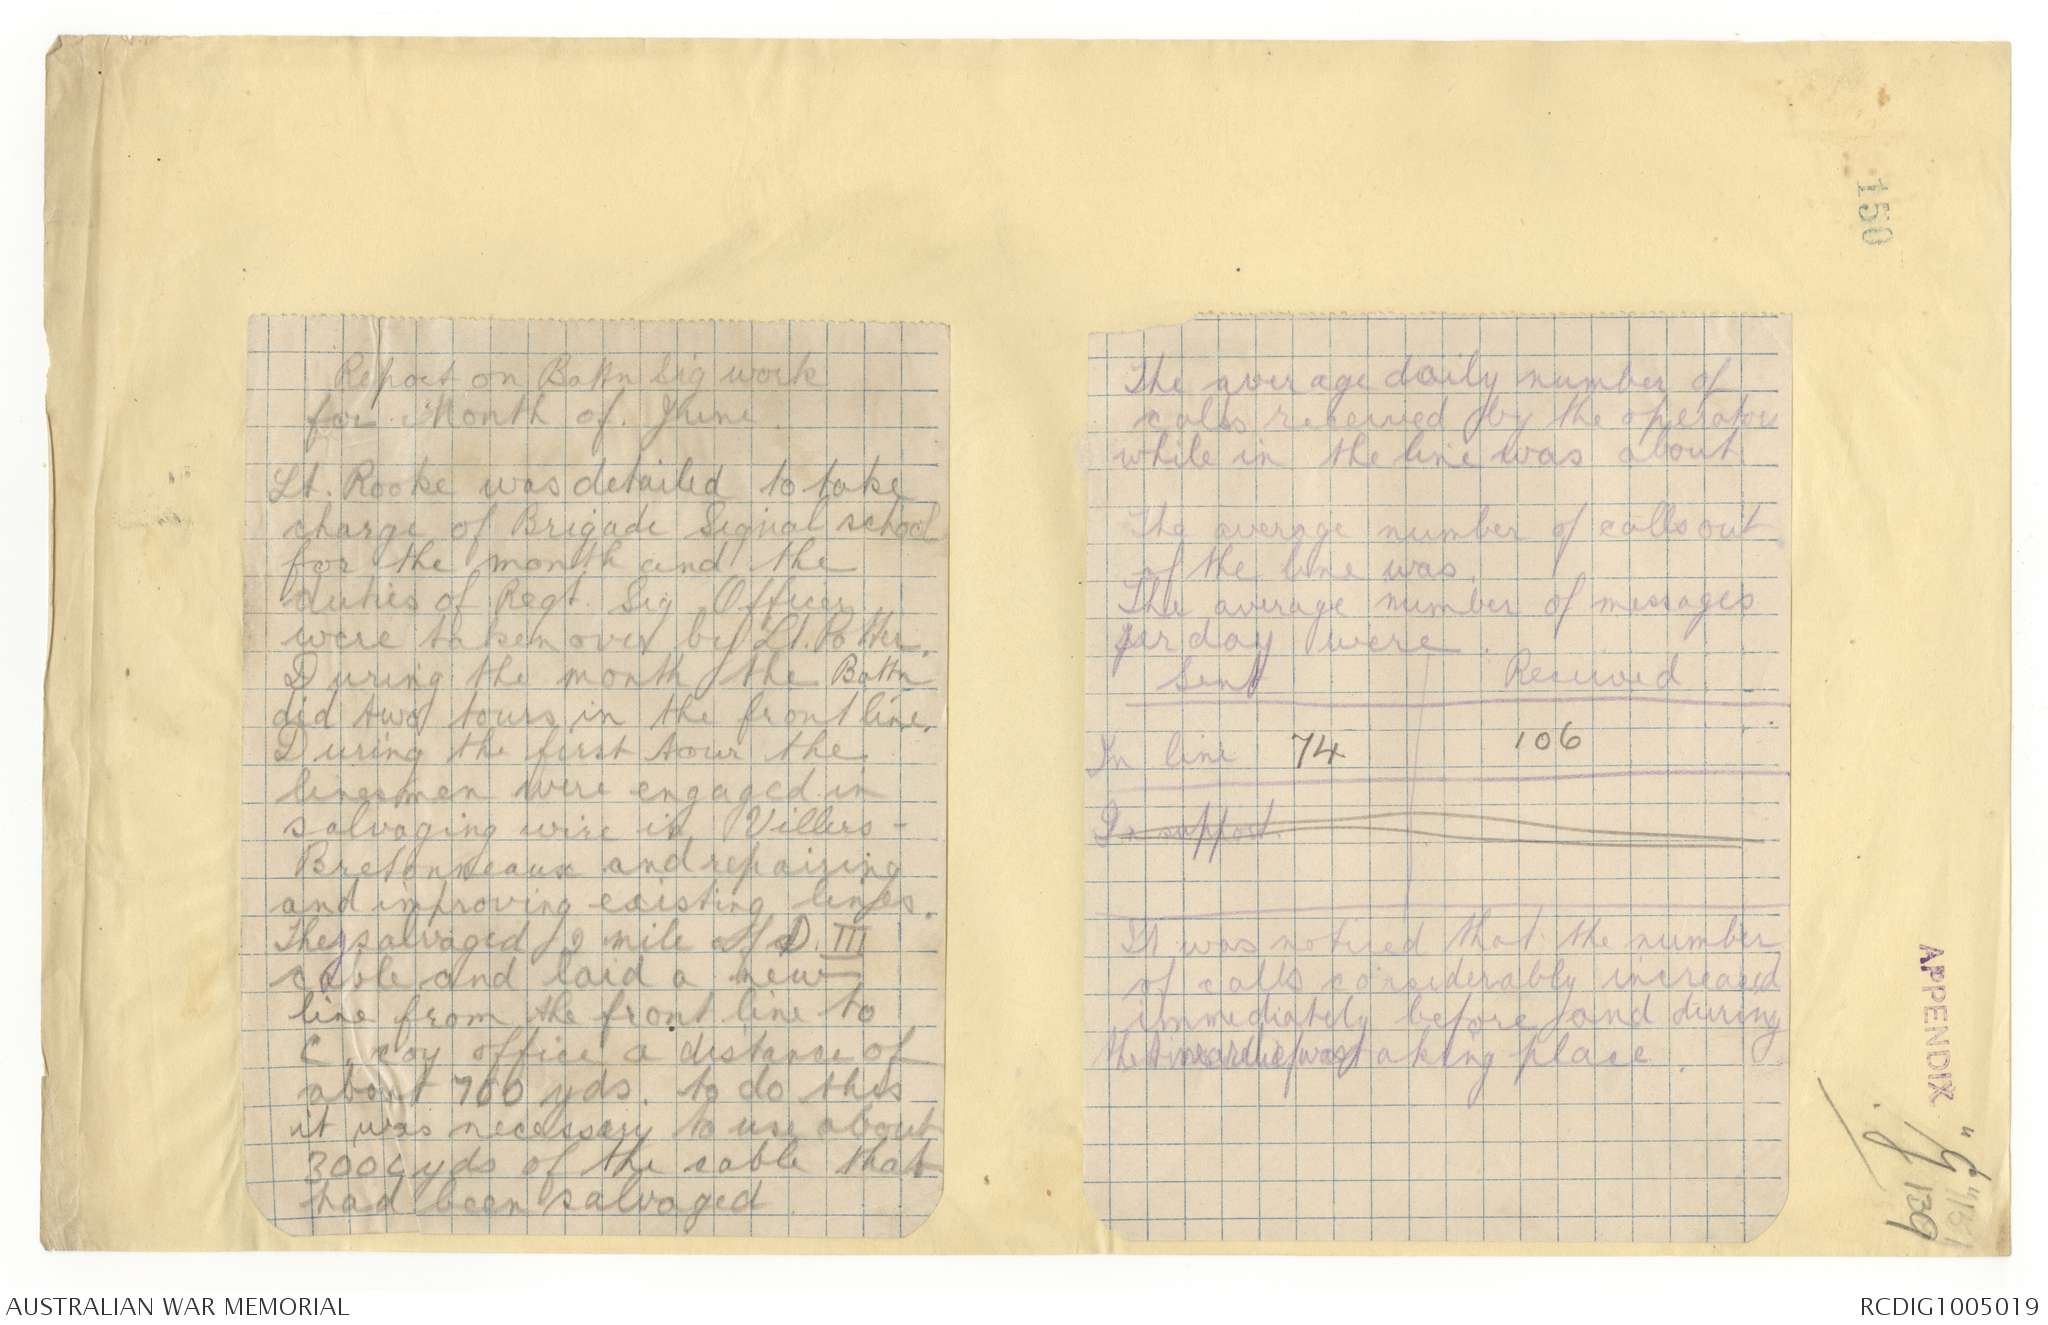 Report on Battn Sig work
for Month of June.
Lt. Rooke was detailed to take
charge of Brigade Signal school
for the month and the
duties of Regt. Sig Officer
were taken over by Lt. Potter.
During the month the Battn
did two tours in the front line.
During the first tour the
linesmen were engaged in
salvaging wire in Villers -
Bretonneaux and repairing
and improving existing lines.
They salvaged 2 mile of D. III
cable and laid a new
line from the front line to
C. coy office a distance of
about 700 yds. to do this
it was necessary to use about
300 yds of the cable that
had been salvaged
The average daily number of
calls received by the operator
while in the line was about
The average number of calls out
of the line was.
The average number of messages
per day were.
Sent Received
In line 74 106
In support.
It was noticed that the number
of calls considerably increased
immediately before and during
the time was taking place.
150
APPENDIX "G"
139
AUSTRALIAN WAR MEMORIAL
RCDIG1005019